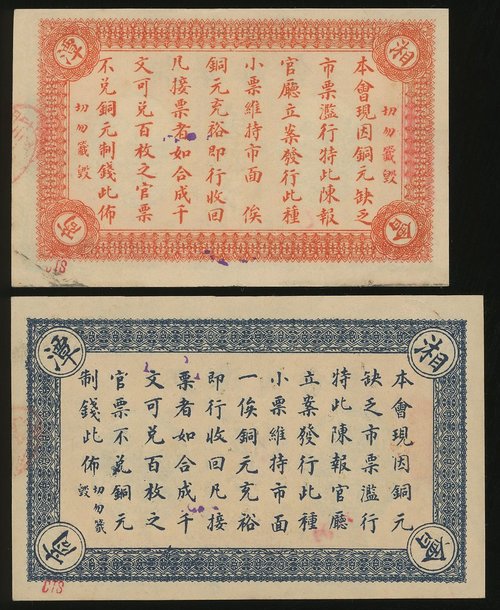 湘
潭
商
會
切勿籤毀
本會現因銅元缺乏
市票濫行特此陳報
官廳立案發行此種
小票維持市面 俟
銅元充裕即行收回
凡接票者如合成千
文可兌百枚之官票
不兌銅元制錢此佈
切勿籤毀
CTS
湘
潭
商
會
本會現因銅元
缺乏市票濫行
特此陳報官廳
立案發行此種
小票維持市面
一俟銅元充裕
即行收回凡接
票者如合成千
文可兌百枚之
官票不兌銅元
制錢此佈 切勿籤
毀
CTS